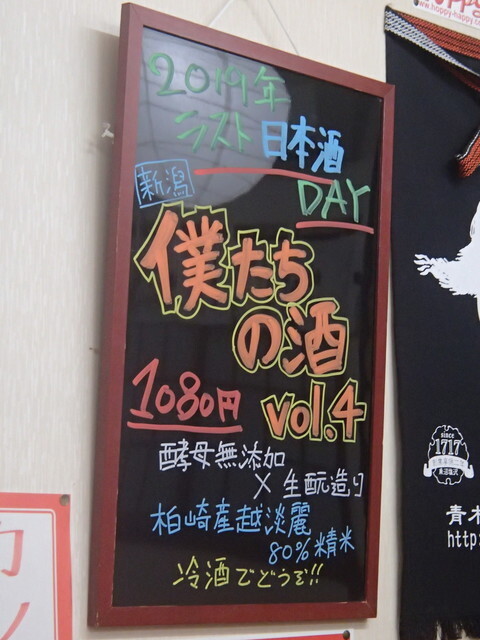 2019年
ラスト日本酒
DAY
新潟
僕たち
の酒
vol.4
1080円
酵母無添加
×生酛造り
柏崎産越淡麗
80%精米
冷酒でどうぞ!!
www.hoppy-happy.c
since
1717
青木
http:
カ